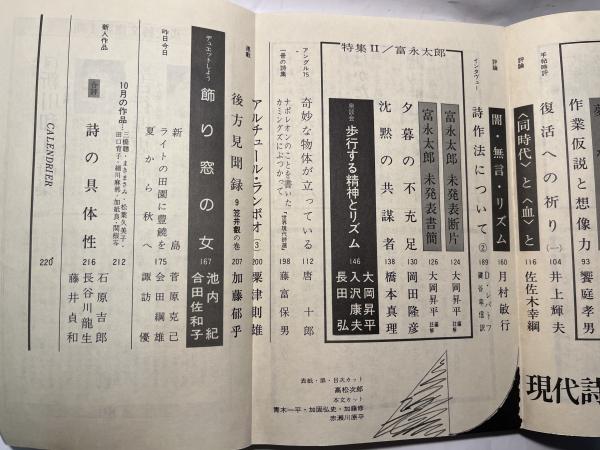 作業仮説と想像力 93 饗庭孝男
半帖時評
復活への祈り(一) 104 井上輝夫
評論
〈同時代〉と〈血〉と 116 佐佐木幸綱
評論
闇・無言・リズム 160 月村敏行
インタヴュー
詩作法について② 189
特集Ⅱ/富永太郎
富永太郎 未発表断片 124 大岡昇平
富永太郎 未発表書簡 126 大岡昇平
夕暮の不充足 130 岡田隆彦
沈黙の共謀者 138 橋本真理
座談会
歩行する精神とリズム 146
大岡昇平
入沢康夫
長田弘
アングル75
奇妙な物体が立っている 112 唐十郎
一冊の詩集
ナポレオンのことを書いた
カミングズにぶつかって 「世界現代詩選」 198 藤富保男
連載
アルチュール・ランボオ(3) 200 粟津則雄
後方見聞録 9 笠井叡の巻 207 加藤郁乎
デュエットしよう
飾り窓の女 167
池内紀
合田佐和子
昨日今日
新島 菅原克己
ライトの田園に豊饒を 175 会田綱雄
夏から秋へ 諏訪優
新人作品
10月の作品…
三橋聡・まきまさみ 松葉久美子・
田口育子・細川麻邨・加紙真・関根宏
212
合評
詩の具体性 216
石原吉郎
長谷川龍生
藤井貞和
CALENDRIER 220
表紙・扉・目次カット
高松次郎
本文カット
青木一平・加固弘史・加藤修
赤瀬川原平
現代詩